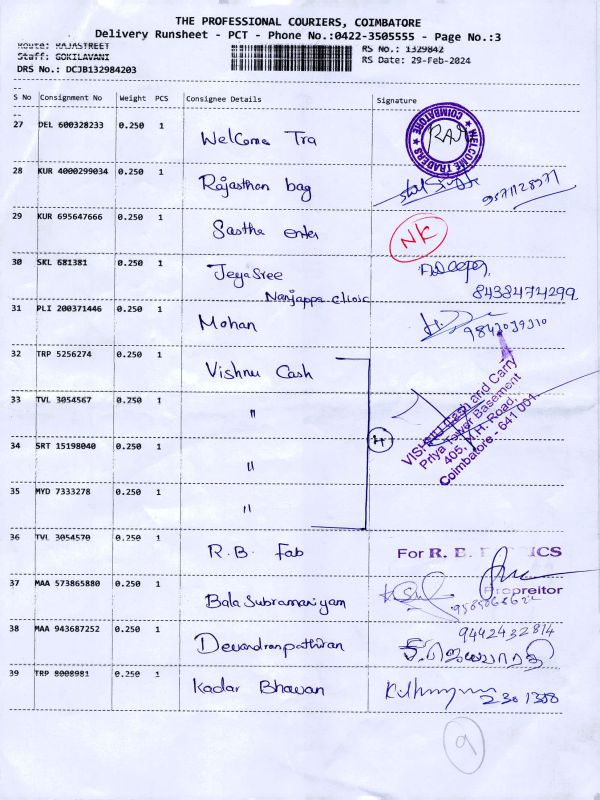 THE PROFESSIONAL COURIERS, COIMBATORE
Delivery Runsheet - PCT - Phone No.:0422-3505555 - Page No.:3
Route: RAJASTREET
Staff: GOKILAVANI
RS No.: 1329842
DRS No.: DCJB132984203
RS Date: 29-Feb-2024
S No Consignment No Weight PCS Consignee Details Signature
27 DEL 600328233 0.250 1 Welcome Tra
COIMBATORE ★ WELCOME TRADERS ★
28 KUR 4000299034 0.250 1 Rajasthan bag
29 KUR 695647666 0.250 1 Sastha enter NK
30 SKL 681381 0.250 1 JeyaSree
8438474299
Nanjappa clinic
31 PLI 200371446 0.250 1 Mohan
32 TRP 5256274 0.250 1 Vishnu Cash
33 TVL 3054567 0.250 1 "
34 SRT 15198040 0.250 1 "
4
35 MYD 7333278 0.250 1 "
VISHNU Cash and Carry
Priya Tower Basement
405, M.H. Road,
Coimbatore - 641 001.
36 TVL 3054570 0.250 1 R.B. Fab
For R. B.
Propreitor
37 MAA 573865880 0.250 1 Bala Subramaniyam
38 MAA 943687252 0.250 1 Devandranpathiran
9442432814
39 TRP 8008981 0.250 1 Kadar Bhawan
2301308
9